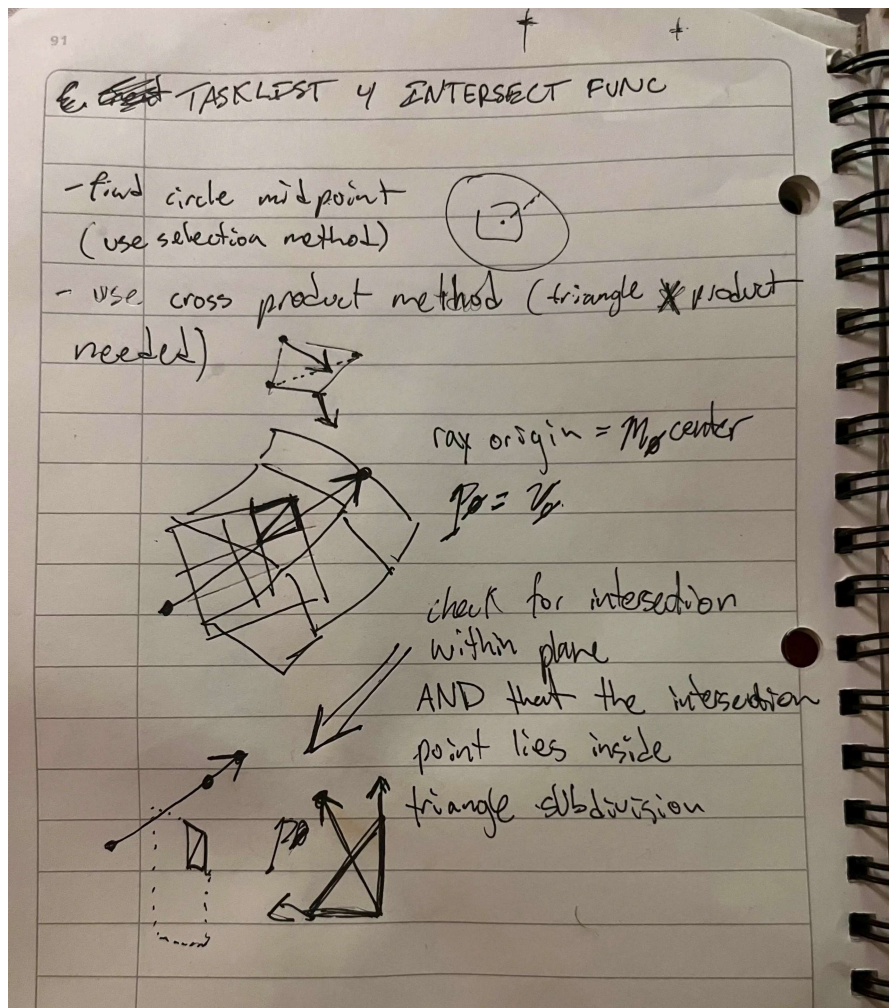 91
TASKLIST 4 INTERSECT FUNC
- find circle midpoint
(use selection method)
- use cross product method (triangle X product
needed)
ray origin = M0 center
P0 = V0
check for intersection
within plane
AND that the intersection
point lies inside
triangle subdivision
P0